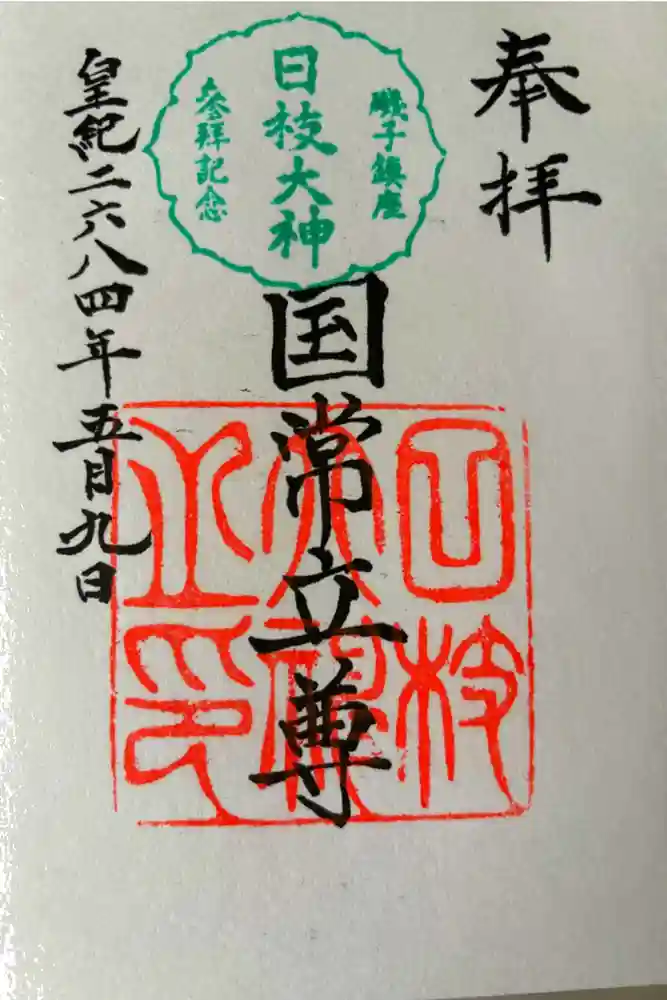 奉拝
子鎮座
日枝大神
参拝記念
国常立尊
日枝
大神
之印
皇紀二六八四年五月九日